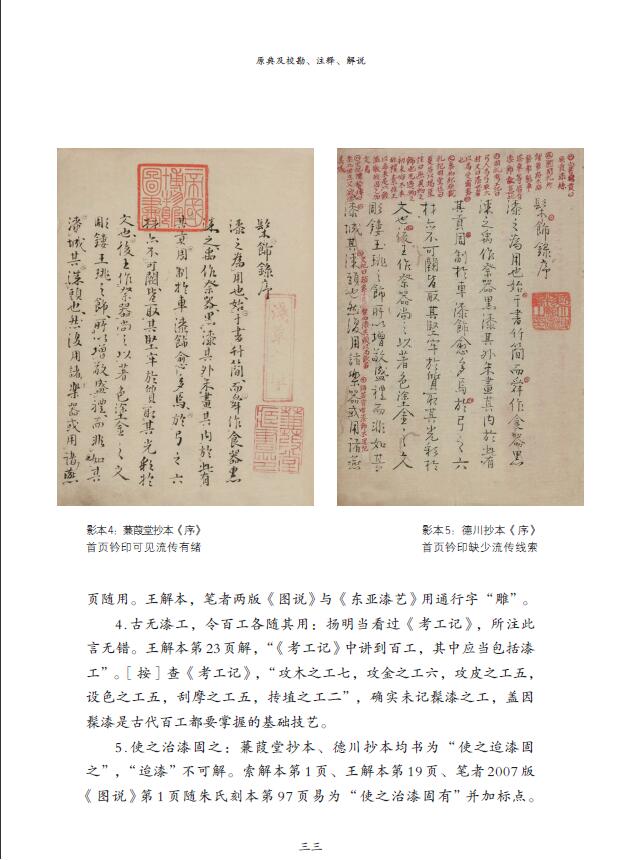 原典及校勘、注释、解说
髹飾錄序
漆之為用也始于書竹簡而舜作食器黑
漆之禹作祭器黑漆其外朱畫其内於此有
其貢周制於車漆飾愈多焉於弓之六
材亦不可闕皆取其堅牢於質取其光彩於
文也後王作祭器尚之以著色塗金之文
彫鏤玉珧之飾所以增敬盛禮而非如其
漆城其漆頭也然後用諸樂器或用諸燕
髹飾錄序
漆之為用也始于書竹簡而舜作食器黑
漆之禹作祭器黑漆其外朱畫其内於此有
其貢周制於車漆飾愈多焉於弓之六
材亦不可闕皆取其堅牢於質取其光彩於
文也後王作祭器尚之以著色塗金之文
彫鏤玉珧之飾所以增敬盛禮而非如其
漆城其漆頭也然後用諸樂器或用諸燕
影本4：蒹葭堂抄本《序》
首页钤印可见流传有绪
影本5：德川抄本《序》
首页钤印缺少流传线索
页随用。王解本，笔者两版《图说》与《东亚漆艺》用通行字“雕”。
4.古无漆工，令百工各随其用：扬明当看过《考工记》，所注此
言无错。王解本第23页解，“《考工记》中讲到百工，其中应当包括漆
工”。［按］查《考工记》，“攻木之工七，攻金之工六，攻皮之工五，
设色之工五，刮摩之工五，抟埴之工二”，确实未记髹漆之工，盖因
髹漆是古代百工都要掌握的基础技艺。
5.使之治漆固之：蒹葭堂抄本、德川抄本均书为“使之迨漆固
之”，“迨漆”不可解。索解本第1页、王解本第19页、笔者2007版
《图说》第1页随朱氏刻本第97页易为“使之治漆固有”并加标点。
三三